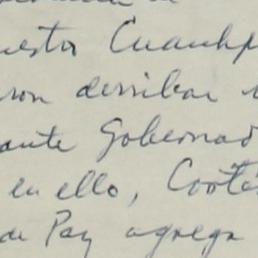 uesta Cuauhp
ron derribar
ante Gobernad
en ello, Cortés
de Paz agrega